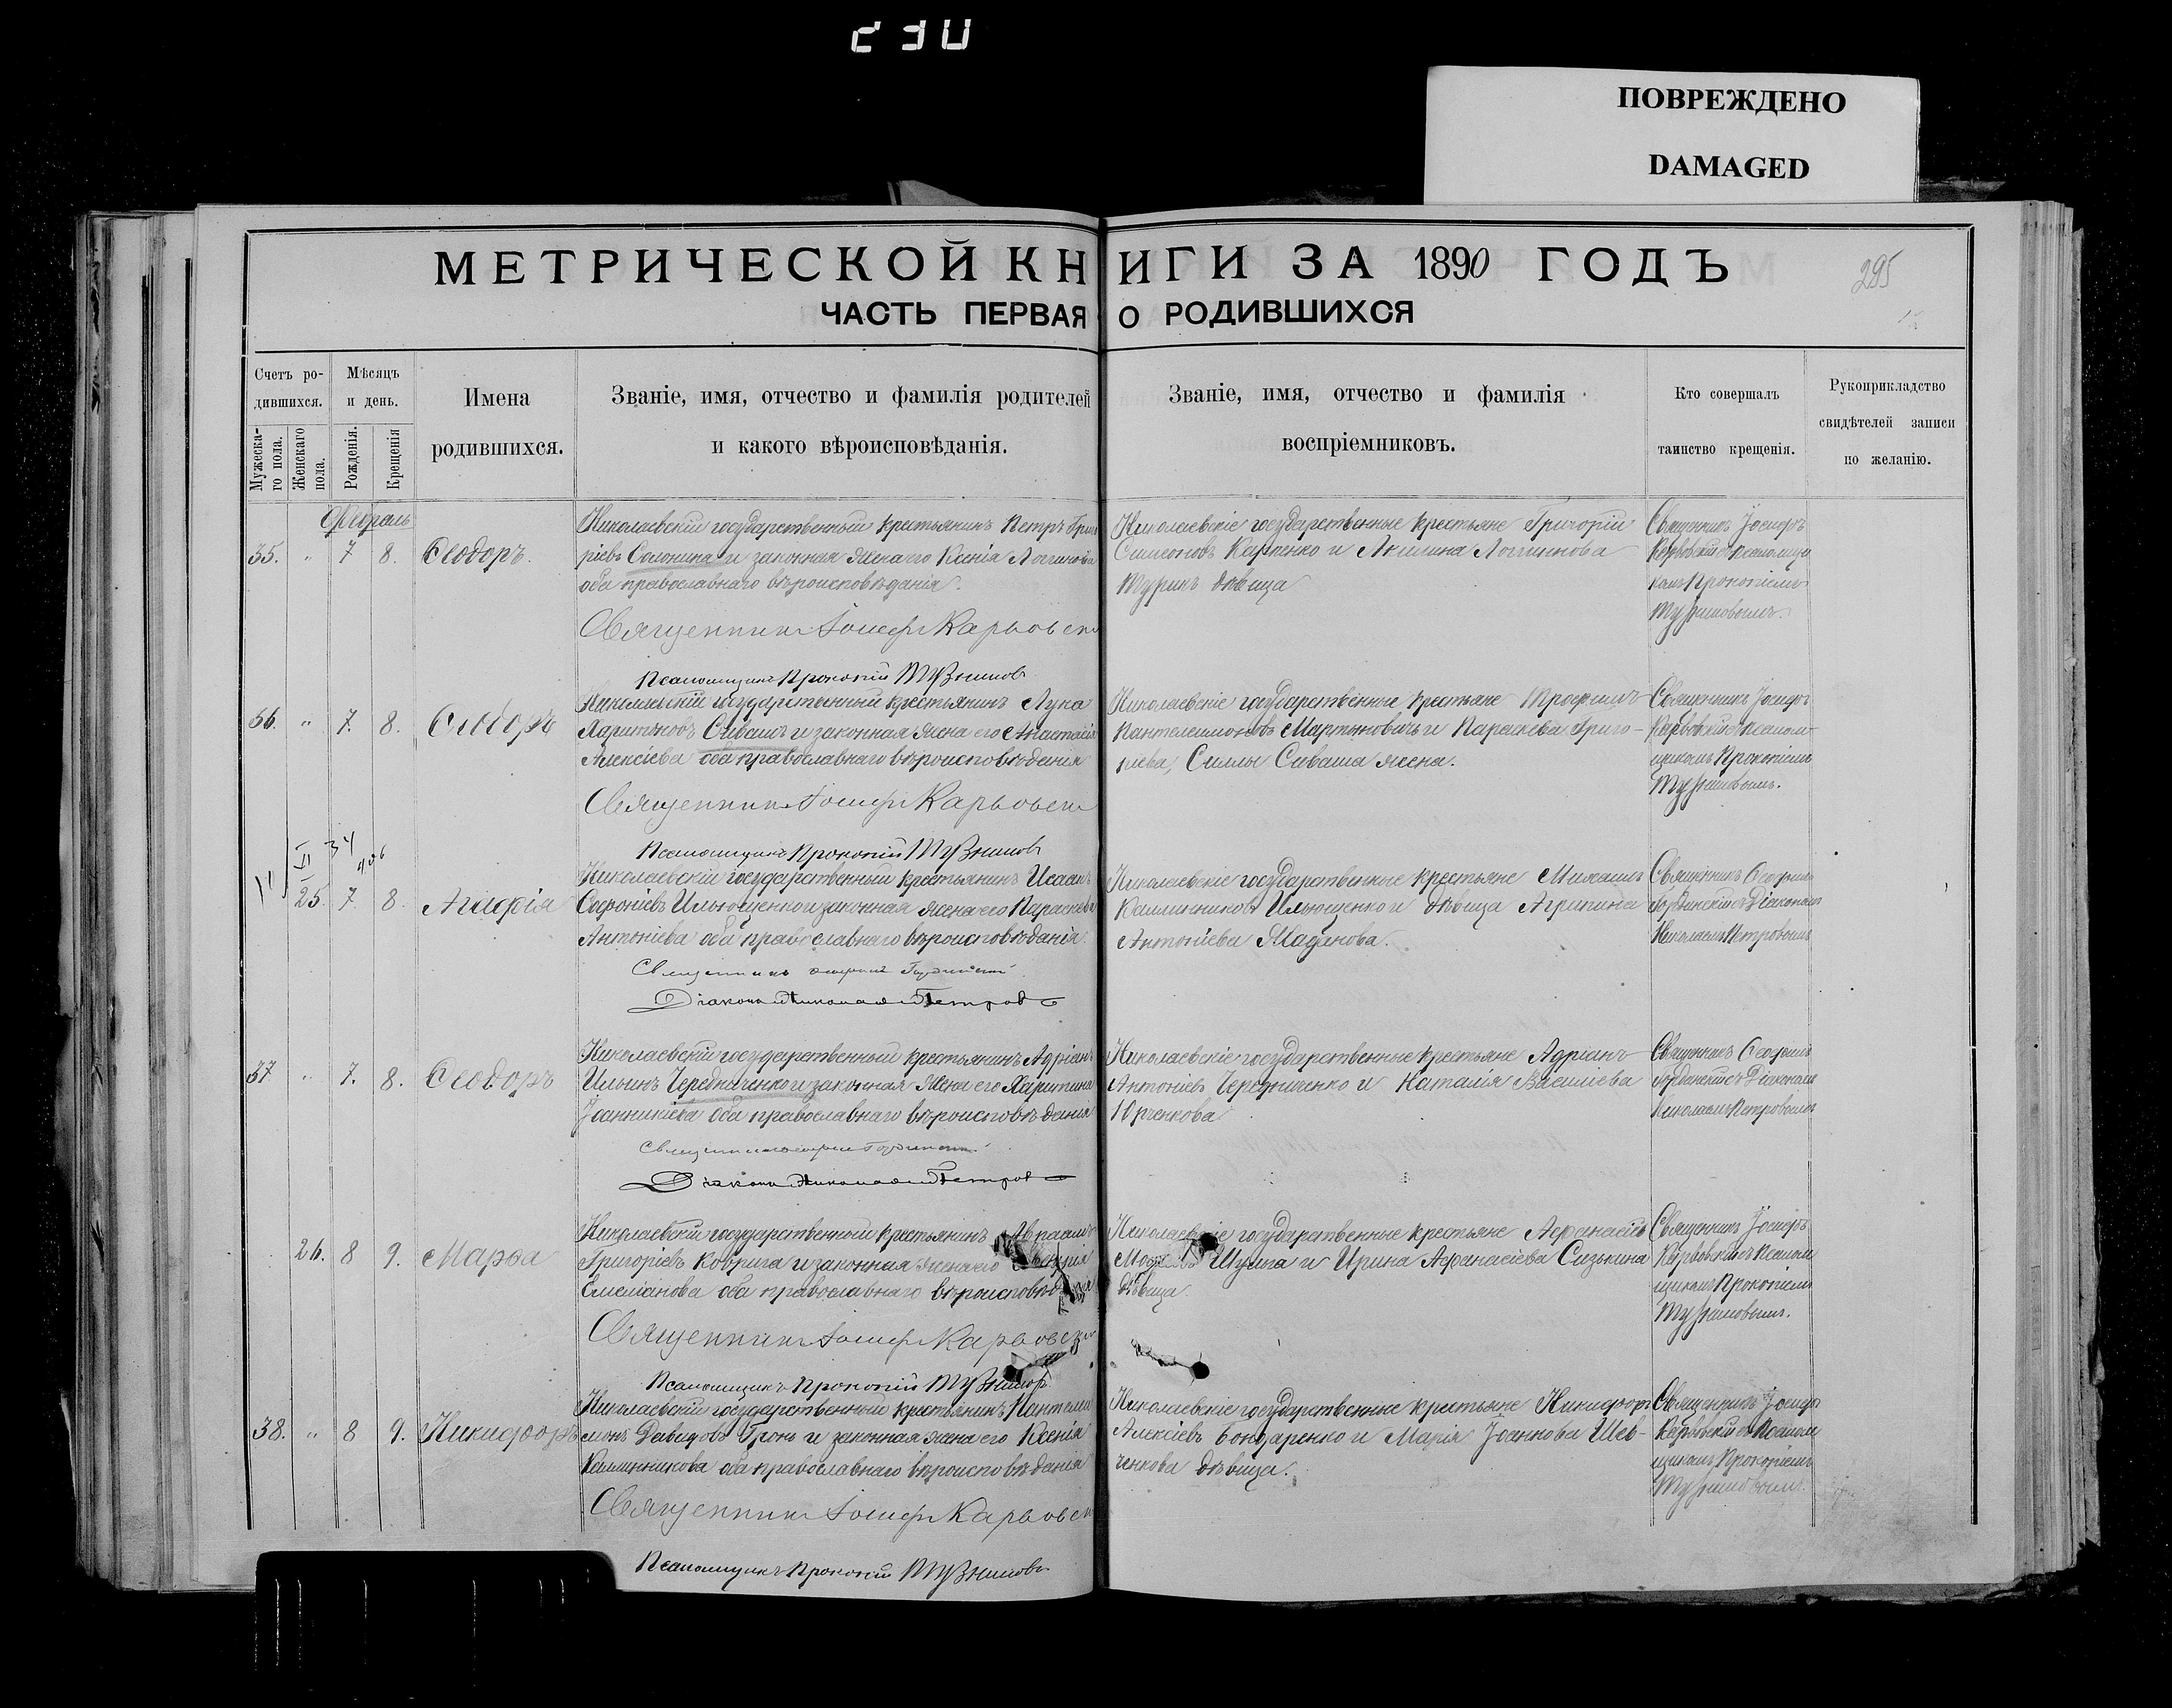 230
ПОВРЕЖДЕНО
DAMAGED
МЕТРИЧЕСКОЙ КНИГИ ЗА 1890 ГОДЪ
295
ЧАСТЬ ПЕРВАЯ О РОДИВШИХСЯ
Счетъ ро-
дившихся.
Мужеска-
го пола.
Женскаго
пола.
Мѣсяцъ
и день.
Рожденія.
Крещенія
Имена
родившихся.
Званіе, имя, отчество и фамилія родителей
и какого вѣроисповѣданія.
Званіе, имя, отчество и фамилія
воспріемниковъ.
Кто совершалъ
таинство крещенія.
Рукоприкладство
свидѣтелей записи
по желанію.
Февраль
35. " 7 8. Ѳеодоръ.
Николаевскій государственный крестьянинъ Петръ Григо
ріевъ Солонина и законная жена его Ксенія Логинова
оба православнаго вѣроисповѣданія.
Священникъ Іосифъ Карвовскі
Псаломщикъ Прокопій
Николаевскіе государственные крестьяне Григорій
Симеоновъ Карпенко и Акилина Логиннова
Туринъ дѣвица
Священникъ Іосифъ
Карвовскій съ Псаломщи
комъ Прокопіемъ
36. " 7. 8. Ѳеодоръ
Николаевскій государственный крестьянинъ Лука
Харитоновъ Сивашъ и законная жена его Анастасія
Алексіева оба православнаго вѣроисповѣданія
Священникъ Іосифъ Карвовск
Псаломщикъ Прокопій
Николаевскіе государственные крестьяне Трофимъ
Пантелеимоновъ Мартыновичъ и Параскева Григо-
ріева, Силлы Сиваша жена.
Священникъ Іосифъ
Карвовскій съ Псалом
щикомъ Прокопіемъ
25. 7. 8. Агафія
Николаевскій государственный крестьянинъ Исаакъ
Софроніевъ Ильющенко и законная жена его Параскева
Антоніева оба православнаго вѣроисповѣданія.
Священникъ
Діаконъ Николай Петровъ
Николаевскіе государственные крестьяне Михаилъ
Каллинниковъ Ильющенко и дѣвица Агрипина
Антоніева
Священникъ
съ Діакономъ
Николаемъ Петровымъ
37 " 7. 8. Ѳеодоръ
Николаевскій государственный крестьянинъ Адріанъ
Ильинъ Чередниченко и законная жена его Харитина
Іоанникіева оба православнаго вѣроисповѣданія
Священникъ
Діаконъ Николай Петровъ
Николаевскіе государственные крестьяне Адріанъ
Антоніевъ Чередниченко и Наталія Василіева
Юрченкова
Священникъ
съ Діакономъ
Николаемъ Петровымъ
26. 8 9. Марѳа
Николаевскій государственный крестьянинъ Авраамъ
Григоріевъ Коврига и законная жена его
Емеліанова оба православнаго вѣроисповѣданія
Священникъ Іосифъ Карвовскі
Псаломщикъ Прокопій
Николаевскіе государственные крестьяне Афанасій
Шулига и Ирина Афанасіева Сизькина
дѣвица
Священникъ Іосифъ
Карвовскій съ Псалом
щикомъ Прокопіемъ
38. " 8 9. Никифоръ
Николаевскій государственный крестьянинъ Пантелеи
монъ Давидовъ Гронь и законная жена его Ксенія
Каллинникова оба православнаго вѣроисповѣданія
Священникъ Іосифъ Карвовск
Псаломщикъ Прокопій
Николаевскіе государственные крестьяне Никифоръ
Алексіевъ Бондаренко и Марія Іоаннова Шев-
ченкова дѣвица.
Священникъ Іосифъ
Карвовскій съ Псалом
щикомъ Прокопіемъ